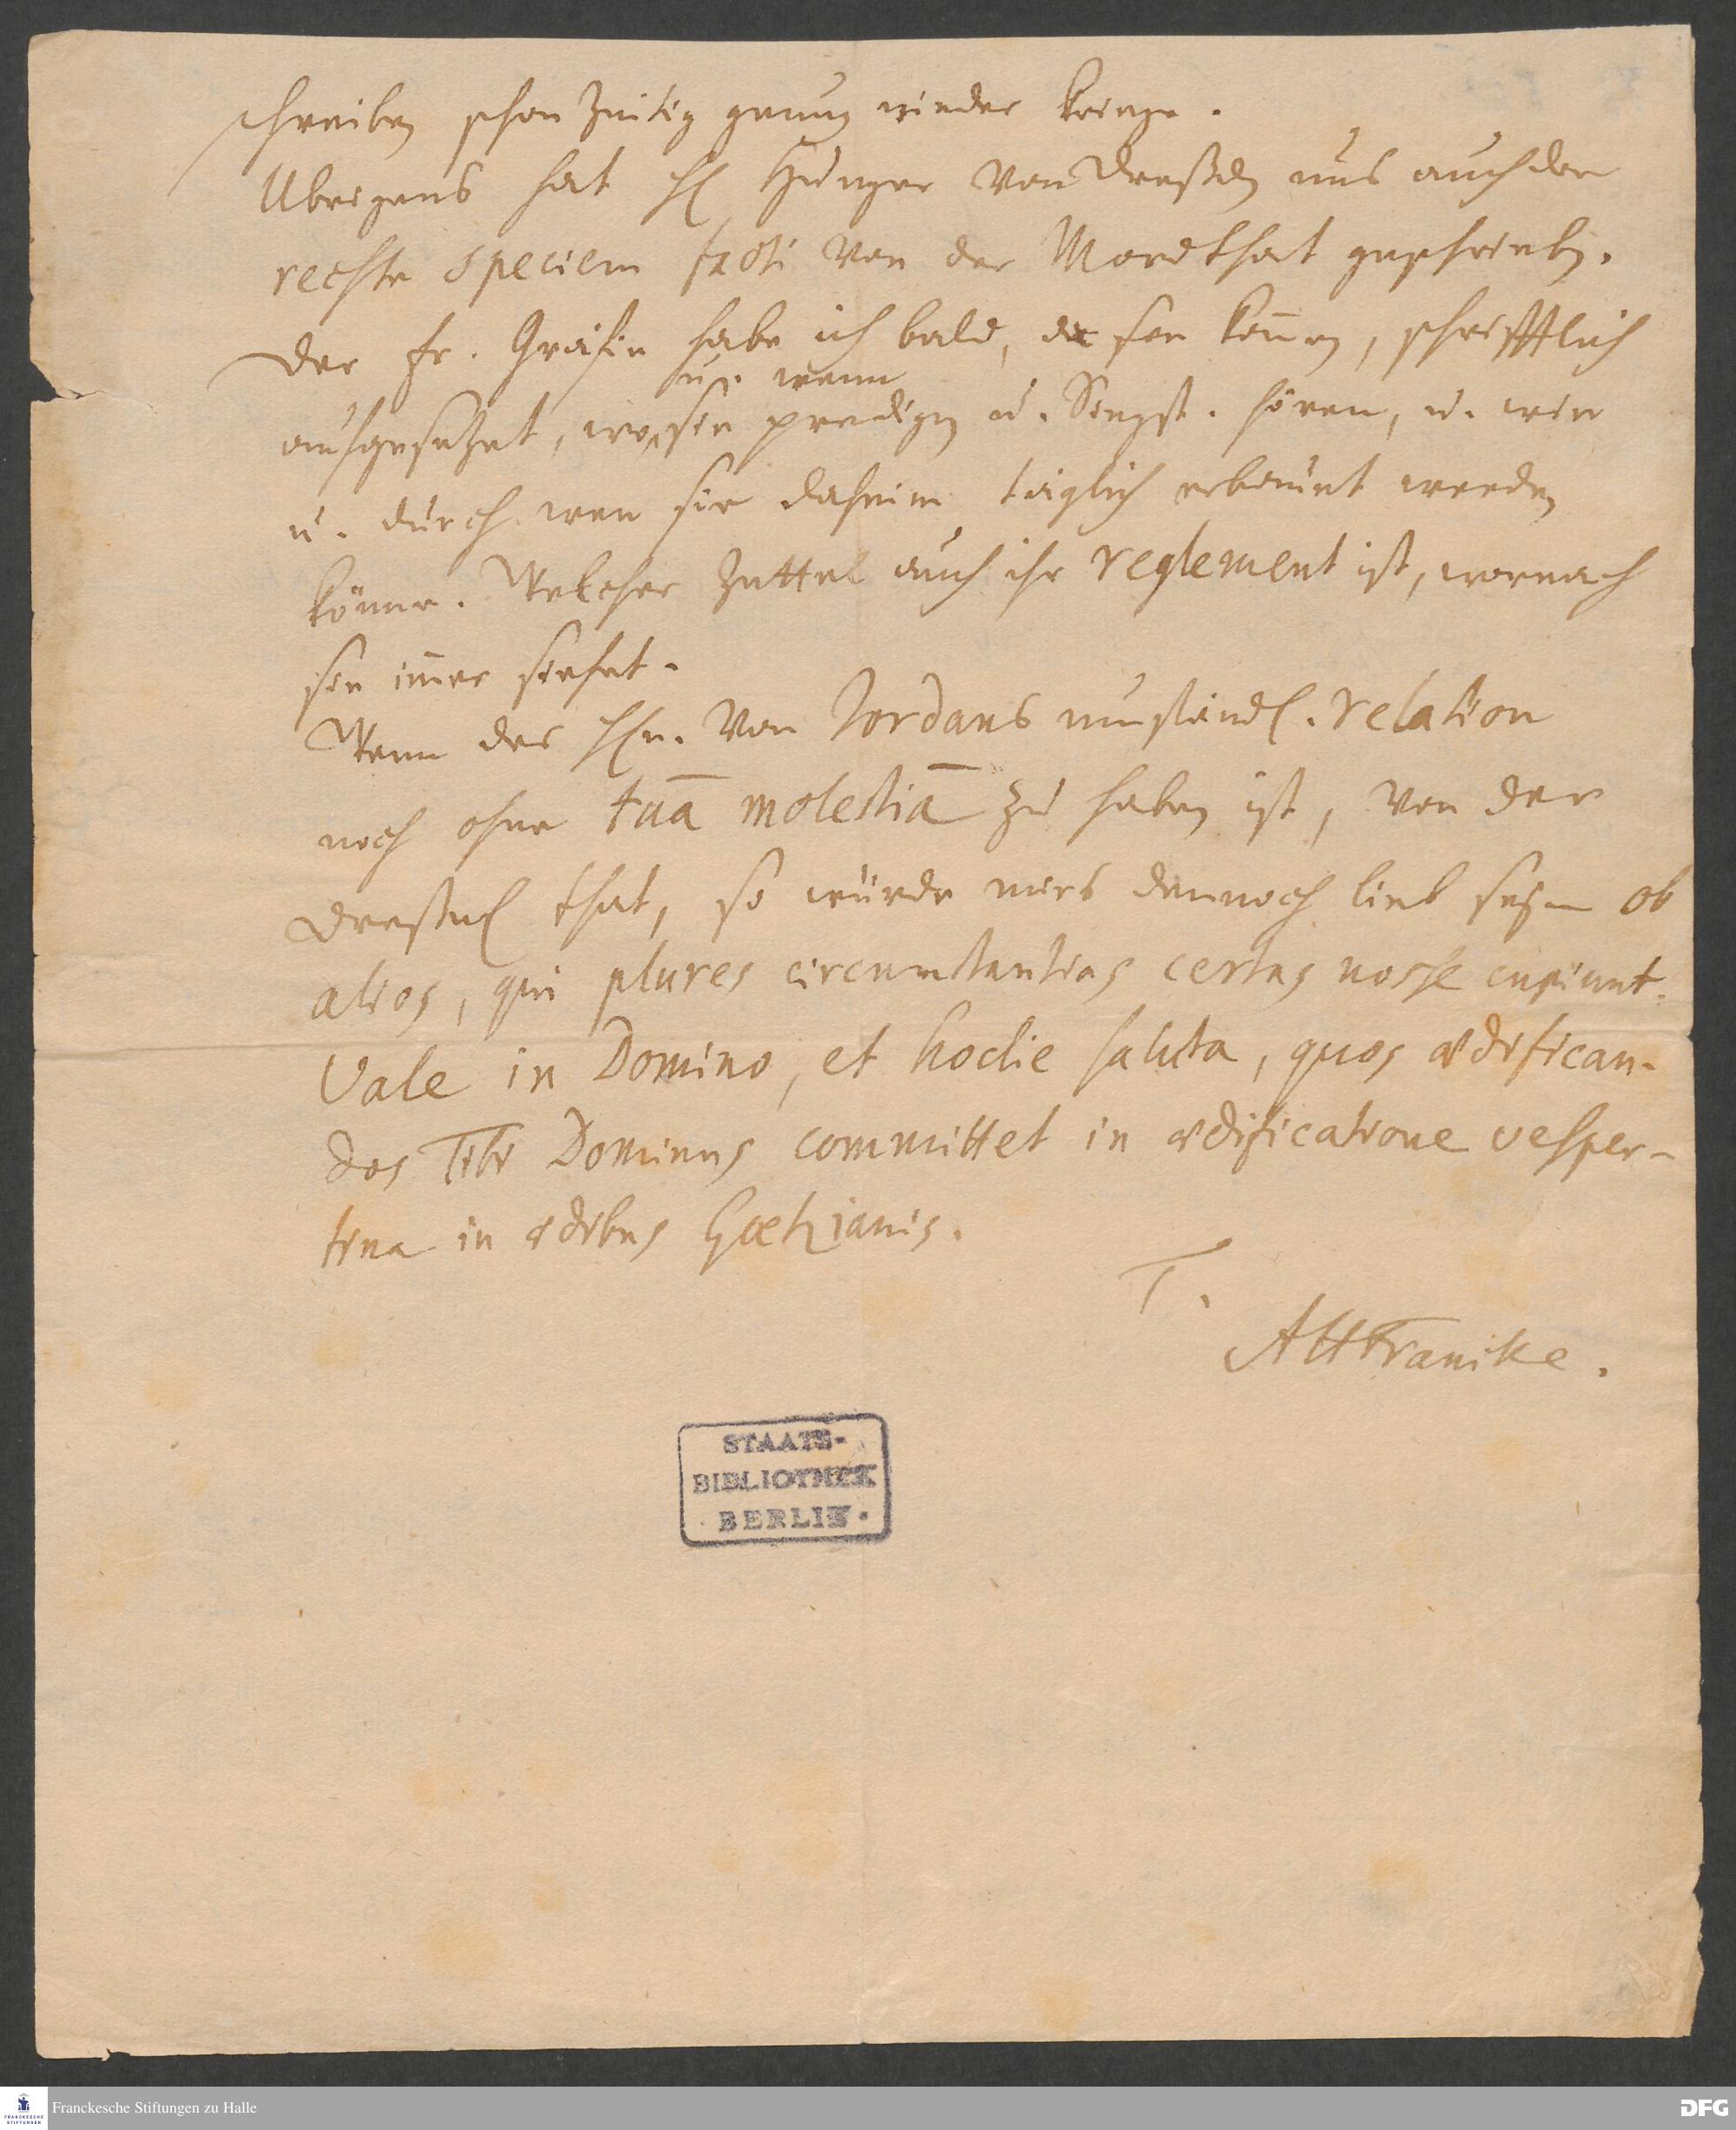 schreiben schon zeitig genug wieder kriege.
Ubrigens hat H. Hunger von Dreßden uns auch die
rechte speciem facti von der Mordthat geschrieben.
Der Fr. Gräfin habe ich bald, da sie kommen, schrifftlich
u. wenn
aufgesetzet, wo sie predigen u. Singst. hören, u. wie
u. durch wen sie daheim täglich erbauet werden
könne. Welcher Zettel auch ihr reglement ist, wornach
sie im̄er siehet.
Wenn des Hn. von Jordans umständl. relation
noch ohne tuā molestiā zu haben ist, von der
Dreßn. that, so würde mirs dennoch lieb seyn ob
alios, qui plures circumstantias certas nosse cupiunt.
Vale in Domino, et hodie saluta, quos ædifican-
dos Tibi Dominus committet in ædificatione vesper-
tina in ædibus Goetzianis.
T.
AHFrancke.
STAATS-
BIBLIOTHEK
BERLIN.
FRANCKESCHE
STIFTUNGEN
Franckesche Stiftungen zu Halle
DFG